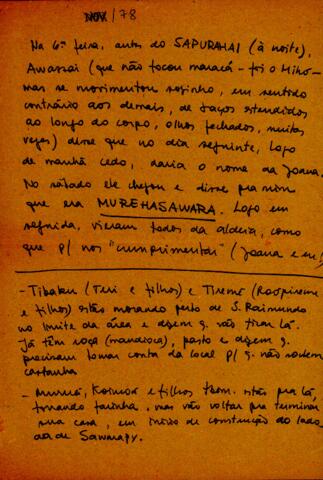 NOV/78
Na 6ª feira, antes do SAPURAHAI (à noite),
Awassai (que não tocou maracá - foi o Mihó-
mas se movimentou sozinho, em sentido
contrário aos demais, de braços estendidos
ao longo do corpo, olhos fechados, muitas
vezes) disse que no dia seguinte, logo
de manhã cedo, daria o nome da Joana.
No sábado ele chegou e disse pra mim
que era MUREHASAWARA. Logo em
seguida, vieram todos da aldeia, como
que p/ nos "cumprimentar" (Joana e eu!)
- Tibaku (Teri e filhos) e Tiremé
e filhos) estão morando perto de S. Raimundo
no limite da área e dizem q. vão tirar lá.
Já têm roça (mandioca), pasto e dizem q.
precisam tomar conta do local p/ q. não roubem
castanha
- Murué, Koimoá e filhos tbém. estão pra lá,
torrando farinha, mas vão voltar pra terminar
sua casa, em início de construção do lado
da de Sawarapy.